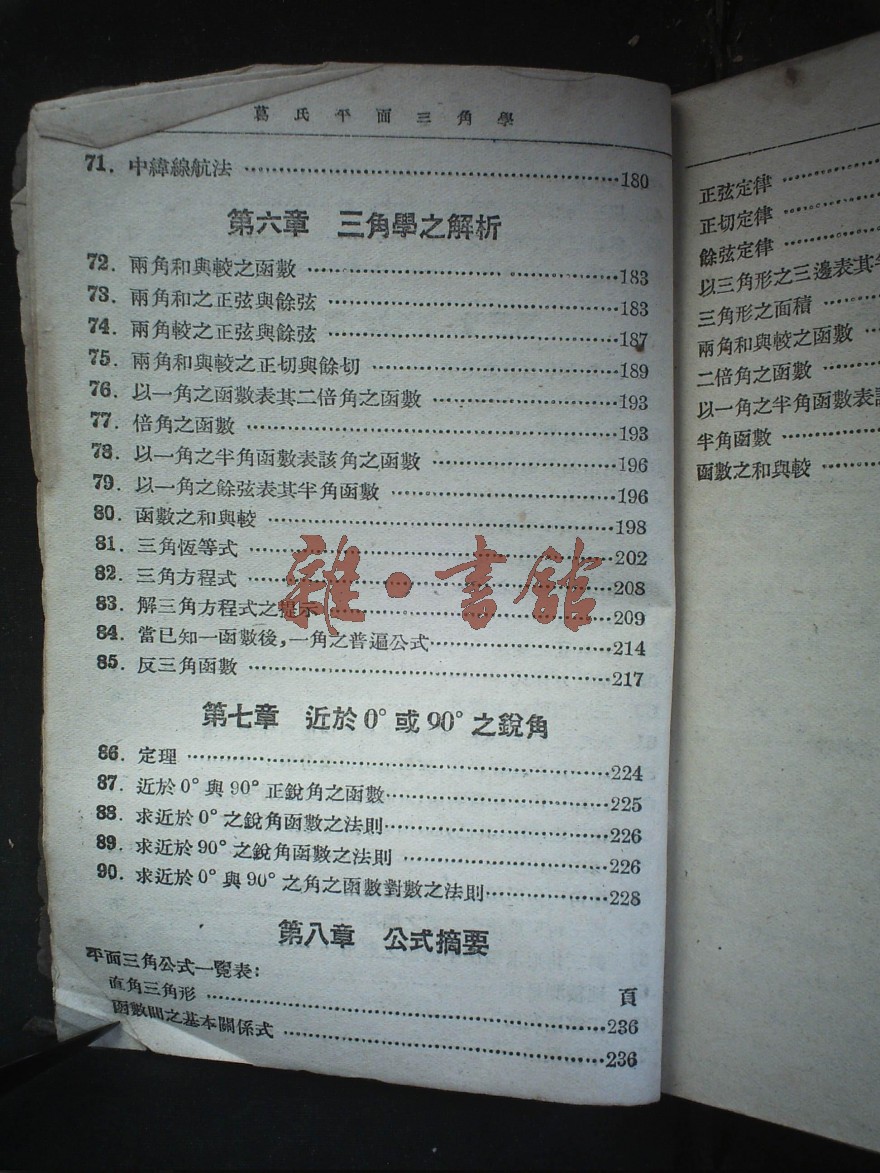 葛氏平面三角學
71. 中緯線航法 ……180
第六章 三角學之解析
72. 兩角和與較之函數 ……183
73. 兩角和之正弦與餘弦 ……183
74. 兩角較之正弦與餘弦 ……187
75. 兩角和與較之正切與餘切 ……189
76. 以一角之函數表其二倍角之函數 ……193
77. 倍角之函數 ……193
78. 以一角之半角函數表該角之函數 ……196
79. 以一角之餘弦表其半角函數 ……196
80. 函數之和與較 ……198
81. 三角恆等式 ……202
82. 三角方程式 ……208
83. 解三角方程式之提示 ……209
84. 當已知一函數後,一角之普遍公式……214
85. 反三角函數 ……217
雜·書館
第七章 近於0°或90°之銳角
86. 定理 ……224
87. 近於0°與90°正銳角之函數……225
88. 求近於0°之銳角函數之法則……226
89. 求近於90°之銳角函數之法則 ……226
90. 求近於0°與90°之角之函數對數之法則……228
第八章 公式摘要
平面三角公式一覽表:
頁
直角三角形 ……236
函數間之基本關係式 ……236
正弦定律 ……
正切定律 ……
餘弦定律 ……
以三角形之三邊表其半
三角形之面積 ……
兩角和與較之函數 ……
二倍角之函數 ……
以一角之半角函數表該
半角函數 ……
函數之和與較 ……